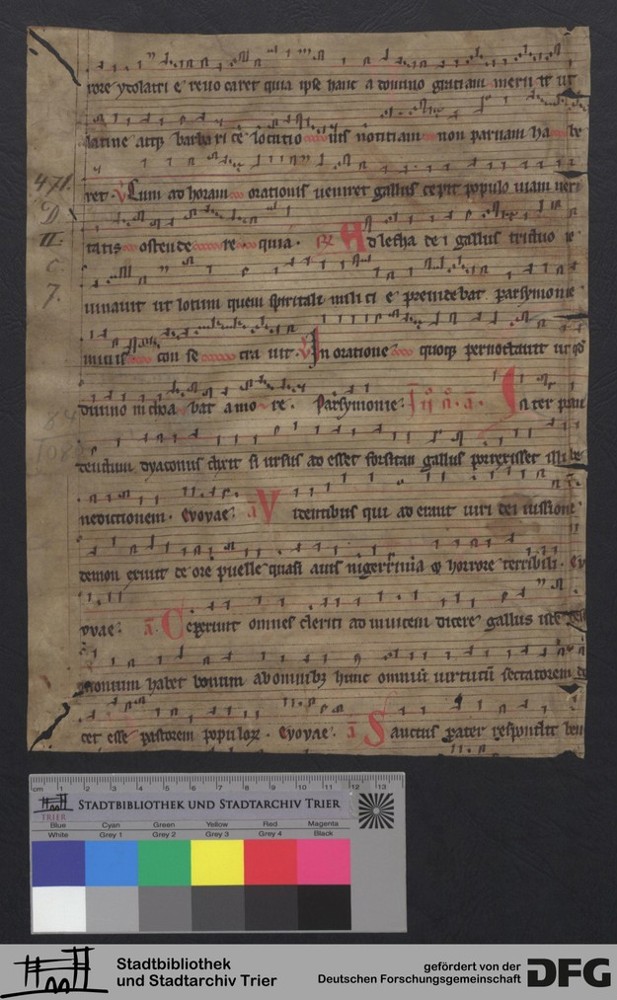 rore ydolatri e revo caret quia ipse hanc a domino gratiam meru it ut
latine atq barbari ce locutio nis notitiam non parvam ha be
ret. V Cum ad horam orationis veniret gallus cepit populo viam veri
tatis ostende re quia. R Ad lesta de i gallus triduo ie
iunavit ut locum quem spiritali mili ci e previdebat parsymonie
con se cra vit. V In oratione quoq pernoctavit
divino in a mo re. Parsymonie. In ter
dyaconus dixit si ursus ad esset forsitan gallus porrexisset illi be
nedictionem. Evovae. a Videntibus qui ad erant viri dei iussione
demon exivit de ore puelle quasi avis nigerrima horrore terribili. Ev
ovae. a Ceperunt omnes clerici ad invicem dicere gallus iste
monium habet bonum ab omnibz hunc omniu virtutu sectatorem de
cet esse pastorem popu lor. Evovae. a Sanctus pater respondit
471.
D
II.
c.
7.
cm 1 2 3 4 5 6 7 8 9 10 11 12 13
TRIER
STADTBIBLIOTHEK UND STADTARCHIV TRIER
Blue Cyan Green Yellow Red Magenta
White Grey 1 Grey 2 Grey 3 Grey 4 Black
Stadtbibliothek
und Stadtarchiv Trier
gefördert von der
Deutschen Forschungsgemeinschaft
DFG